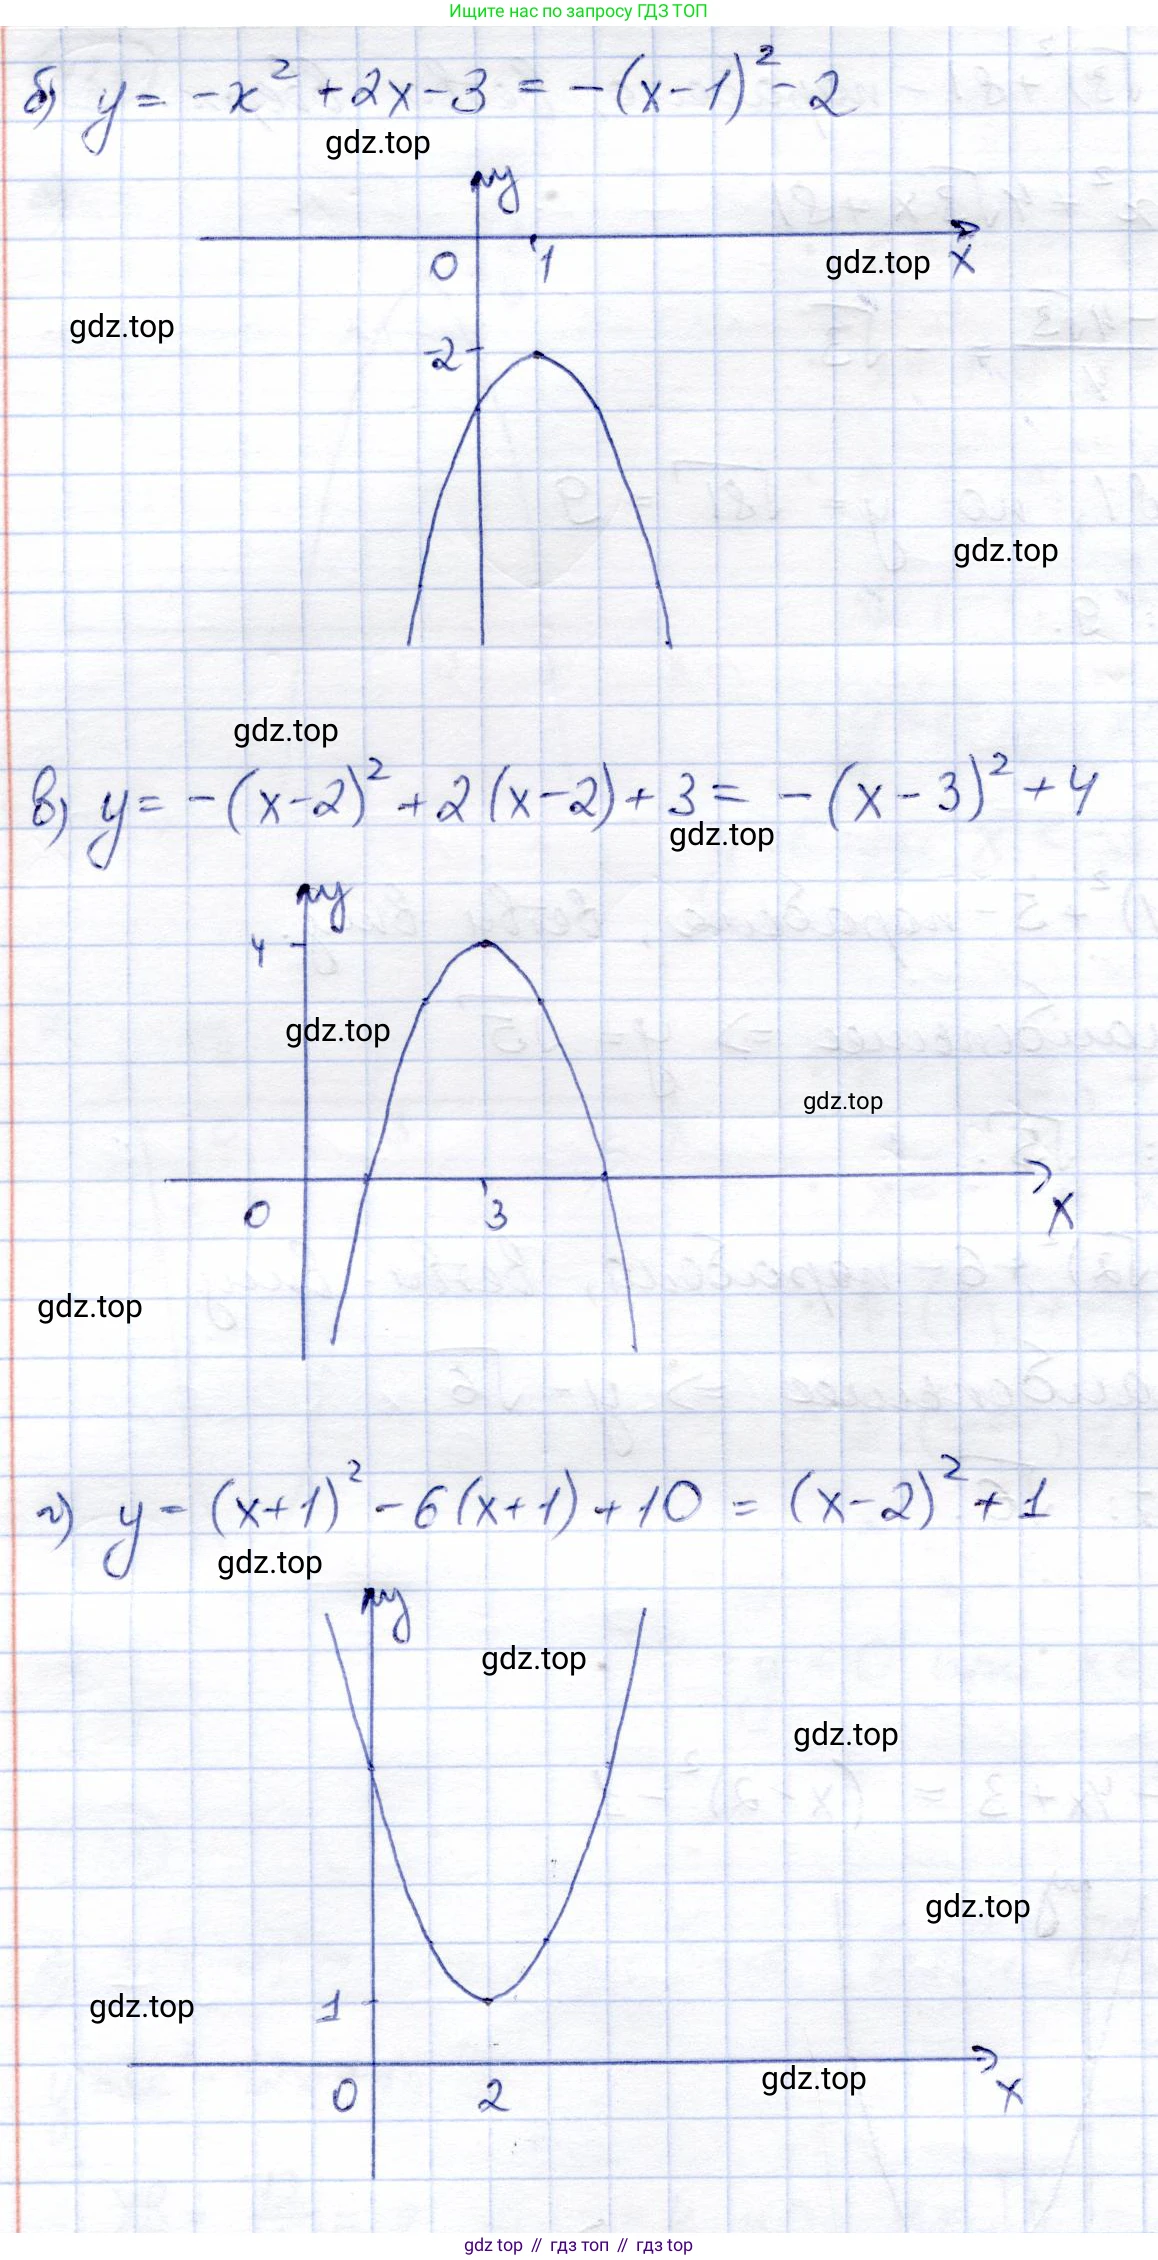 Ищите нас по запросу ГДЗ ТОП
б) y = -x² + 2x - 3 = -(x-1)² - 2
gdz.top
y
0 1 gdz.top x
gdz.top
-2
gdz.top
gdz.top
в) y = -(x-2)² + 2(x-2) + 3 = -(x-3)² + 4
gdz.top
y
4
gdz.top
gdz.top
0 3 x
gdz.top
г) y = (x+1)² - 6(x+1) + 10 = (x-2)² + 1
gdz.top
y
gdz.top
gdz.top
gdz.top
1
gdz.top
gdz.top
0 2 x
gdz top // гдз топ // гдз top